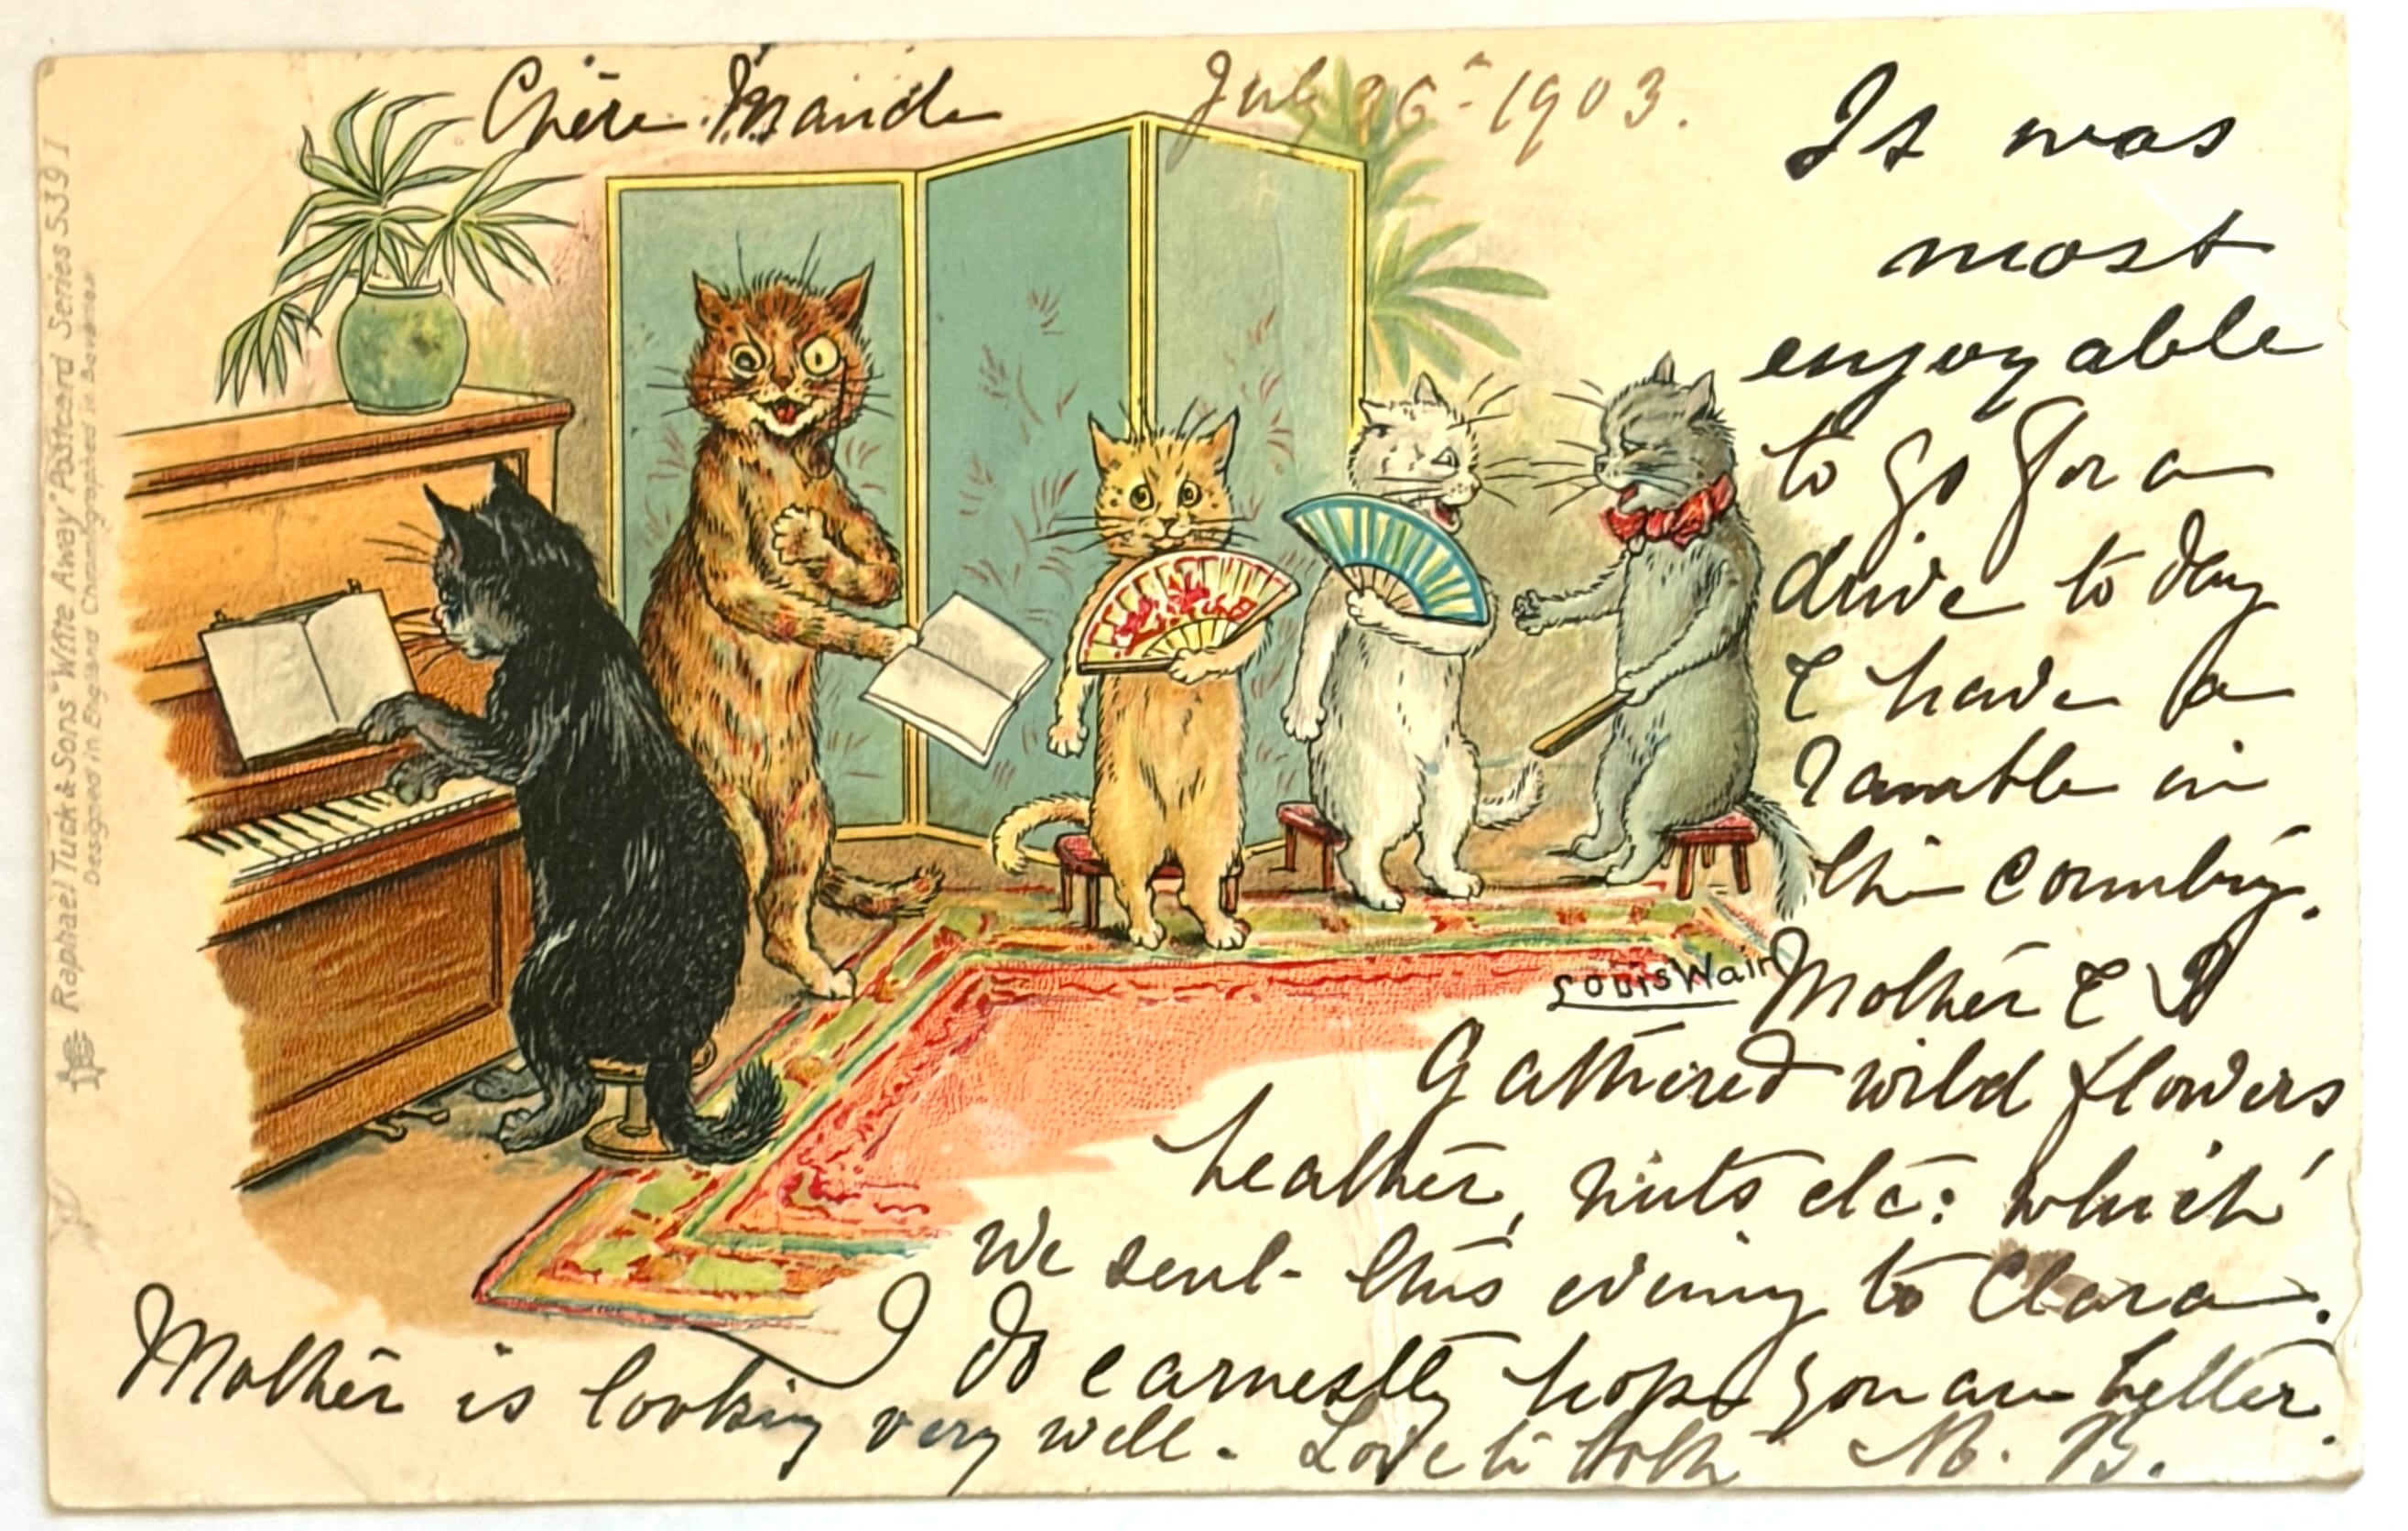 Chère Maude
July 26th 1903.
It was
most
enjoyable
to go for a
drive to day
& have a
ramble in
the country.
Mother & I
Gathered wild flowers
heather, nuts etc: which
We sent this evening to Clara.
I do earnestly hope you are better.
Mother is looking very well. Love to both M. B.
Louis Wain
Raphael Tuck & Sons "Write Away" Postcard Series 539 I
Designed in England Chromographed in Bavaria